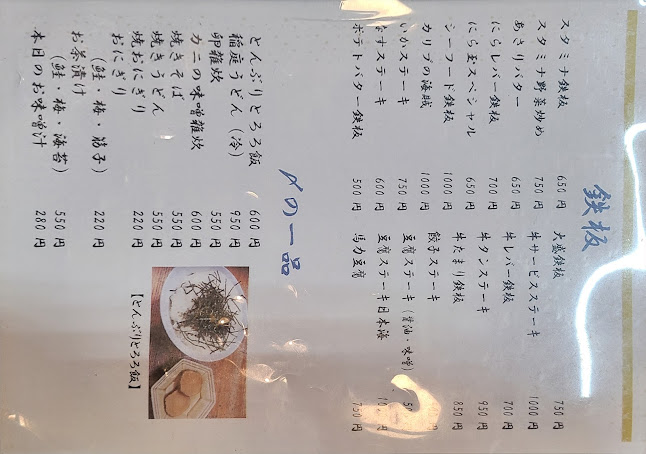 鉄板
スタミナ鉄板 650円
スタミナ野菜炒め 750円
あさりバター 650円
にらレバー鉄板 700円
にら玉スペシャル 650円
シーフード鉄板 1000円
カリブの海賊 1000円
いかステーキ 750円
なすステーキ 600円
ポテトバター鉄板 500円
大盛鉄板 750円
牛サービスステーキ 1000円
牛レバー鉄板 700円
牛タンステーキ 950円
牛たまり鉄板 850円
餃子ステーキ
豆腐ステーキ(醤油・味噌)
豆腐ステーキ日本海
馬力豆腐 750円
〆の一品
どんぶりとろろ飯 600円
稲庭うどん(冷) 950円
卵雑炊 550円
カニの味噌雑炊 600円
焼きそば 550円
焼きうどん 550円
焼おにぎり 220円
おにぎり
(鮭・梅・筋子) 220円
お茶漬け
(鮭・梅・海苔) 550円
本日のお味噌汁 280円
【どんぶりとろろ飯】